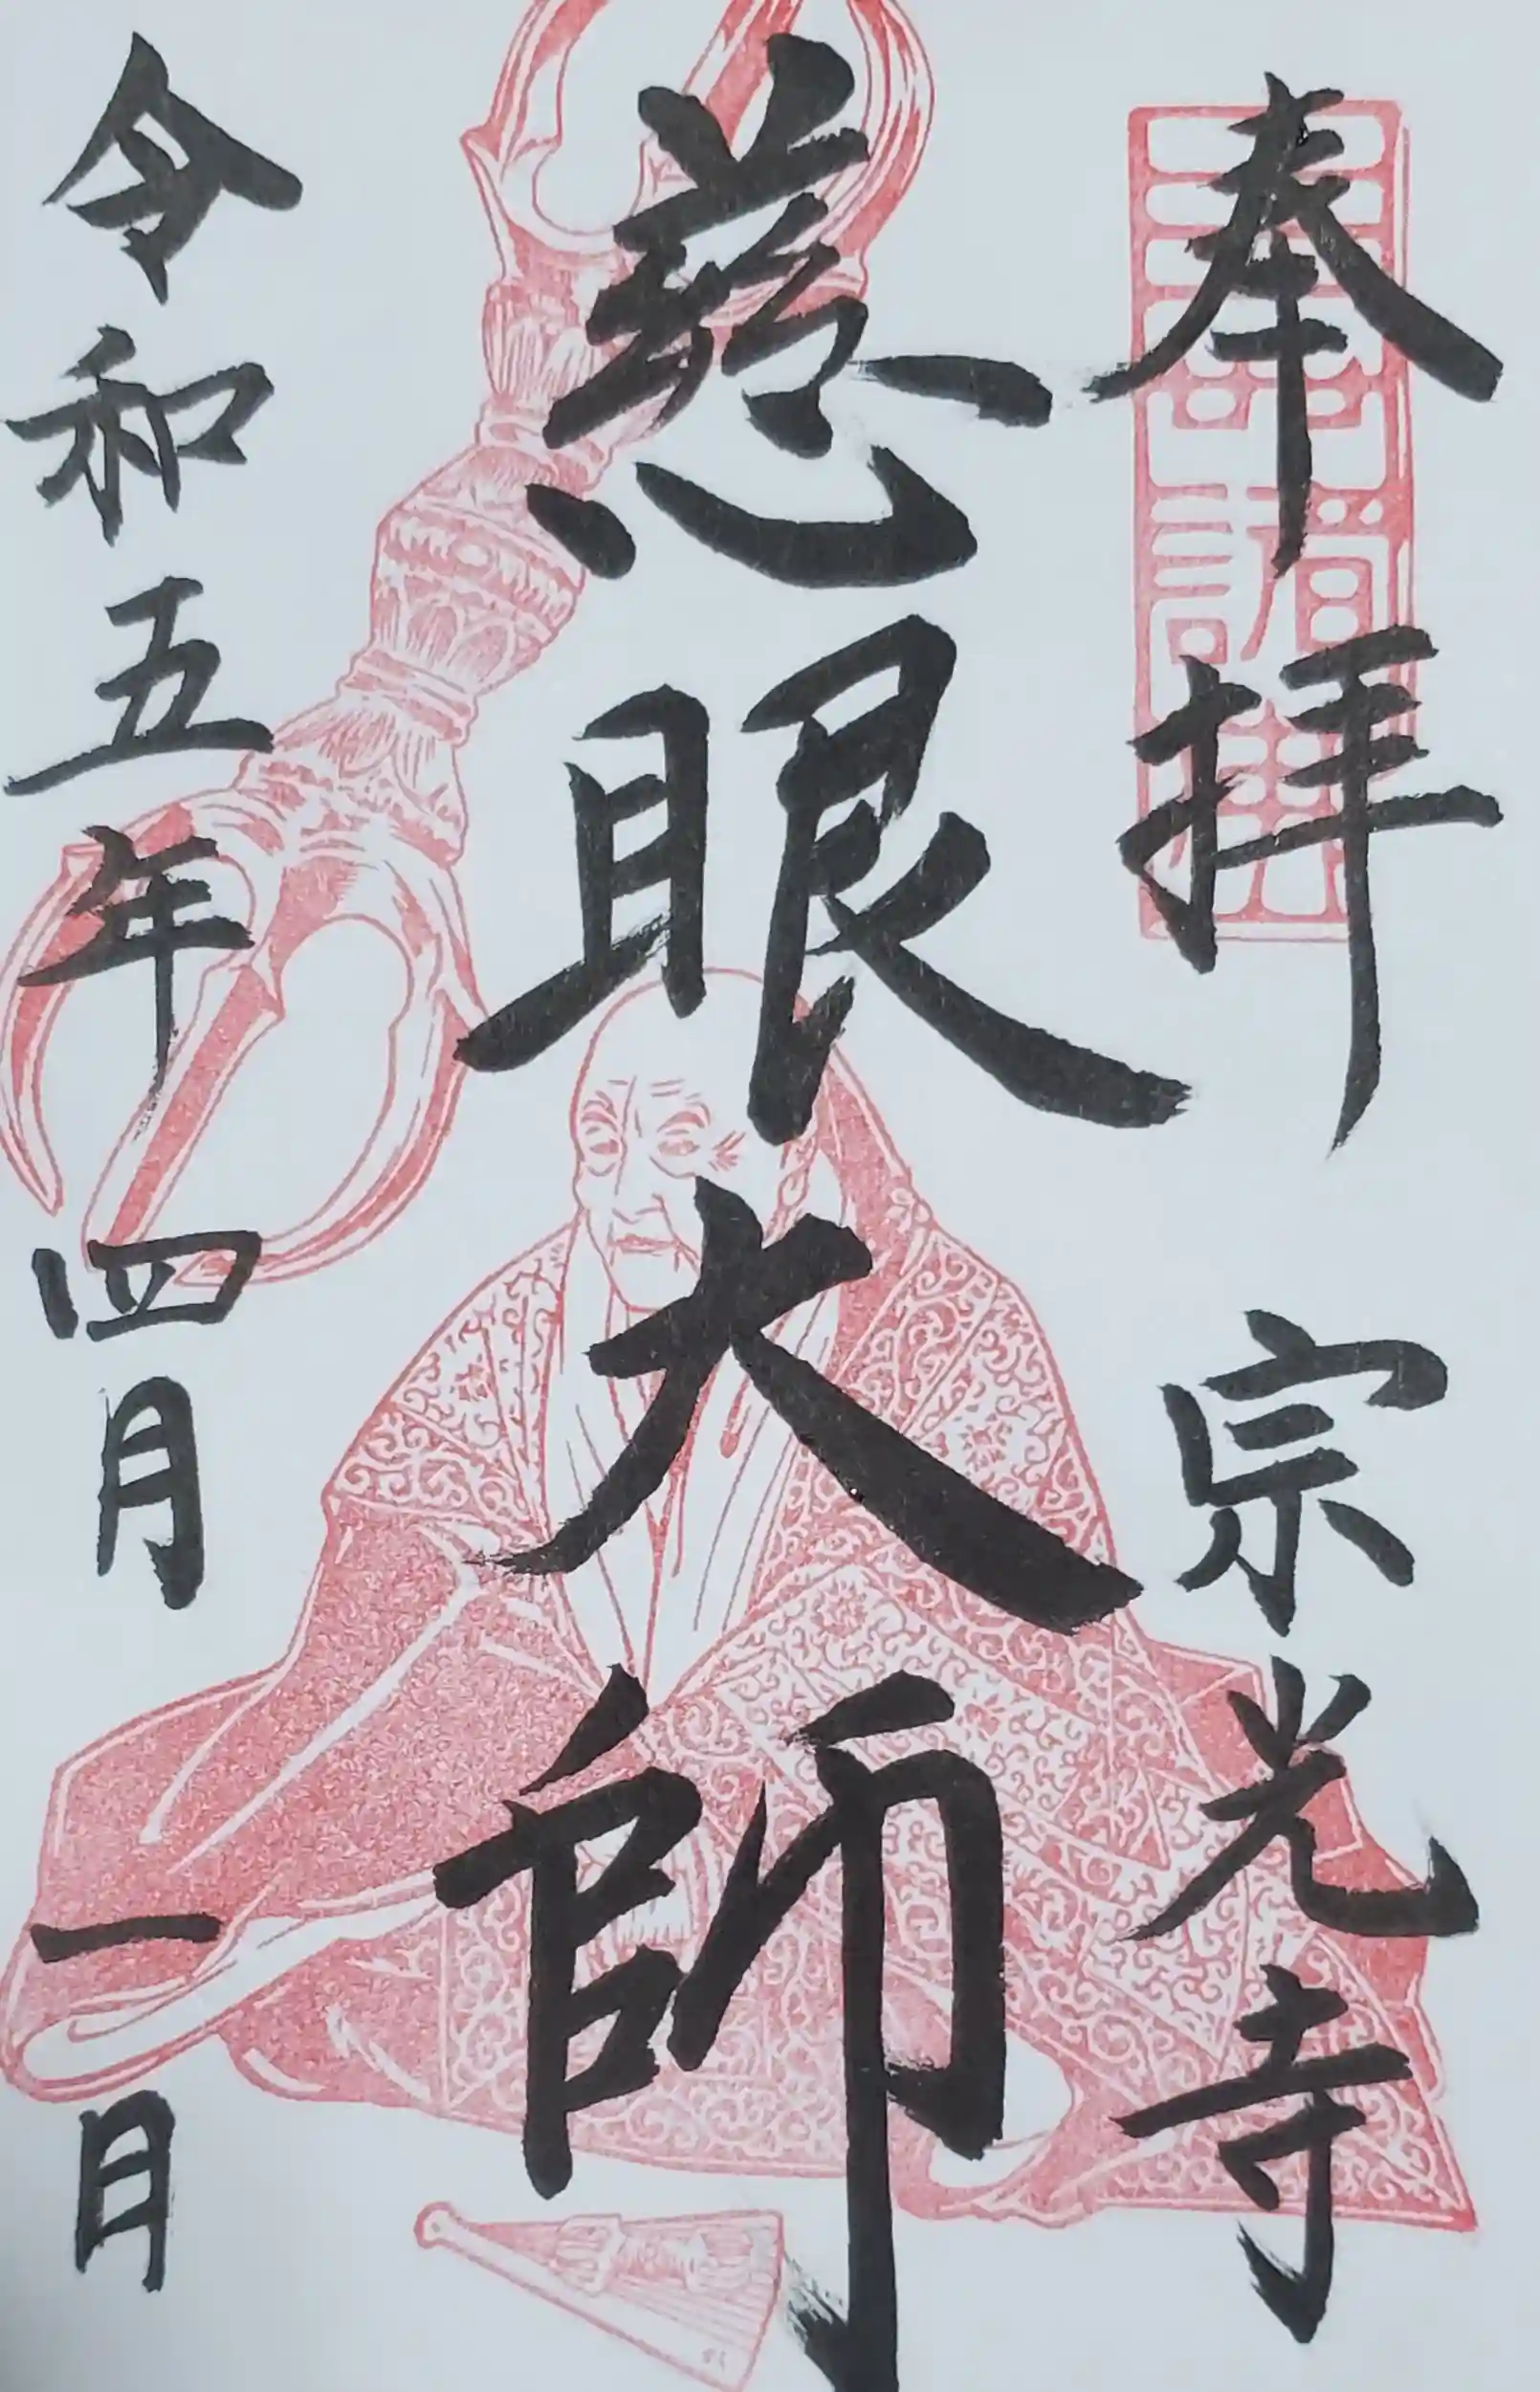 奉拝 宗光寺
慈眼大師
令和五年四月一日